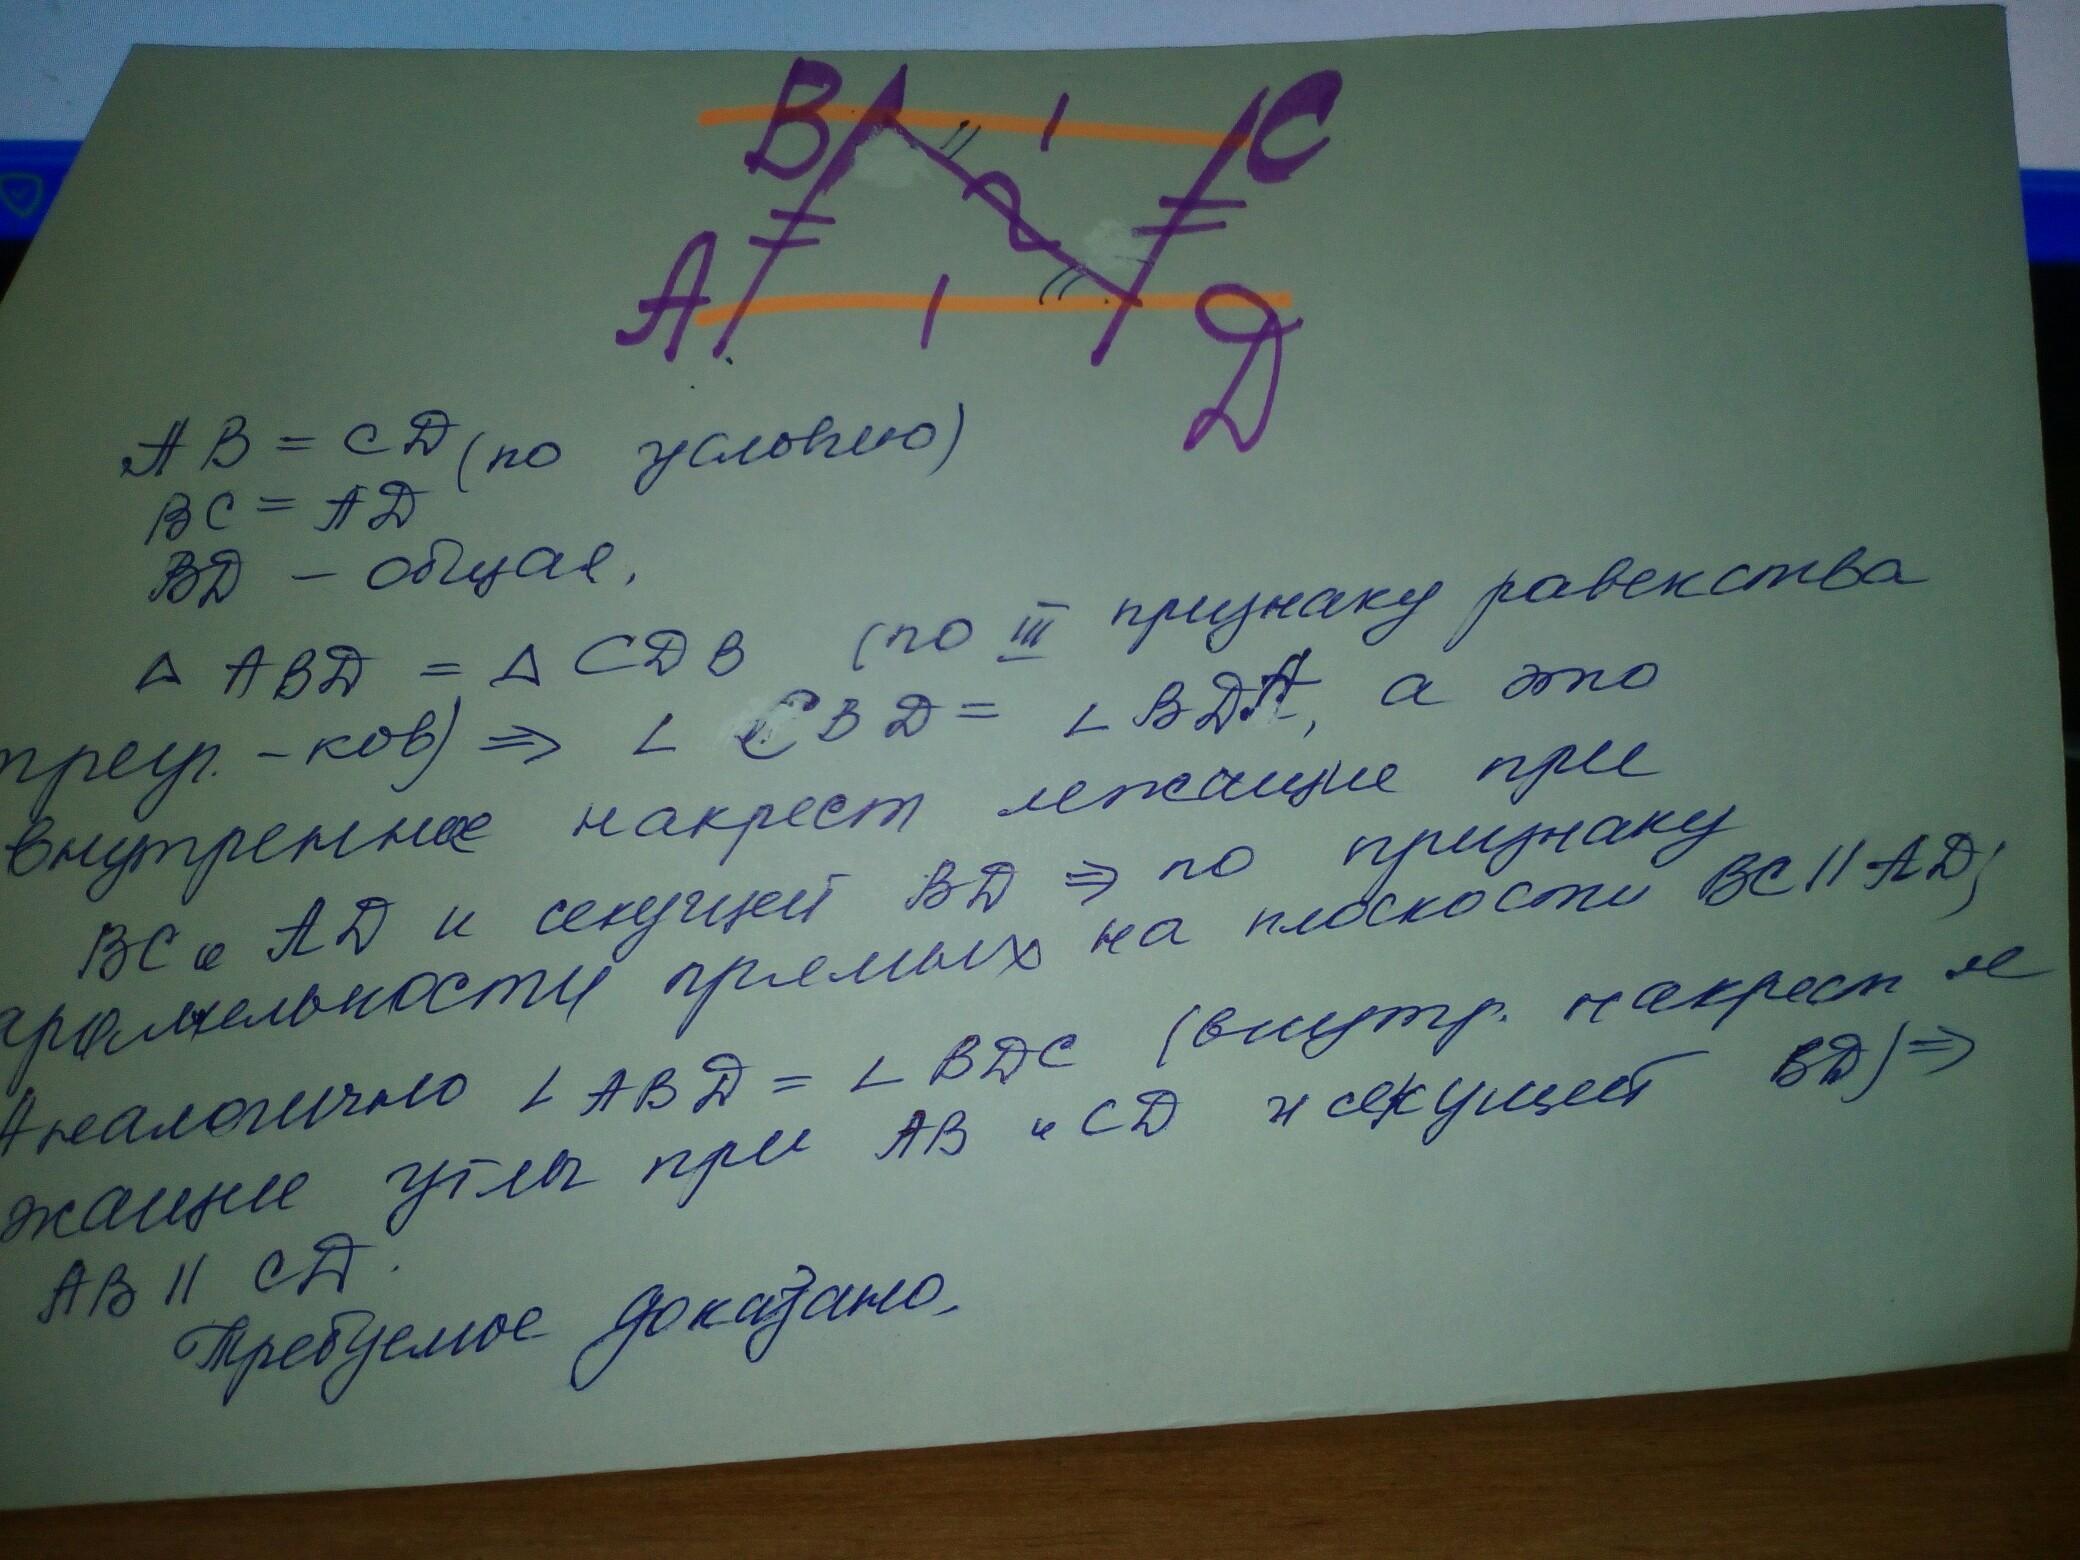 B C
A D
AB = CD (по условию)
BC = AD
BD – общая,
△ ABD = △ CDB (по III признаку равенства
треуг. -ков) ⇒ ∠ CBD = ∠ BDA, а это
внутренние накрест лежащие при
BC и AD и секущей BD ⇒ по признаку
параллельности прямых на плоскости BC || AD;
Аналогично ∠ ABD = ∠ BDC (внутр. накрест ле
жащие углы при AB и CD и секущей BD) ⇒
AB || CD.
Требуемое доказано.